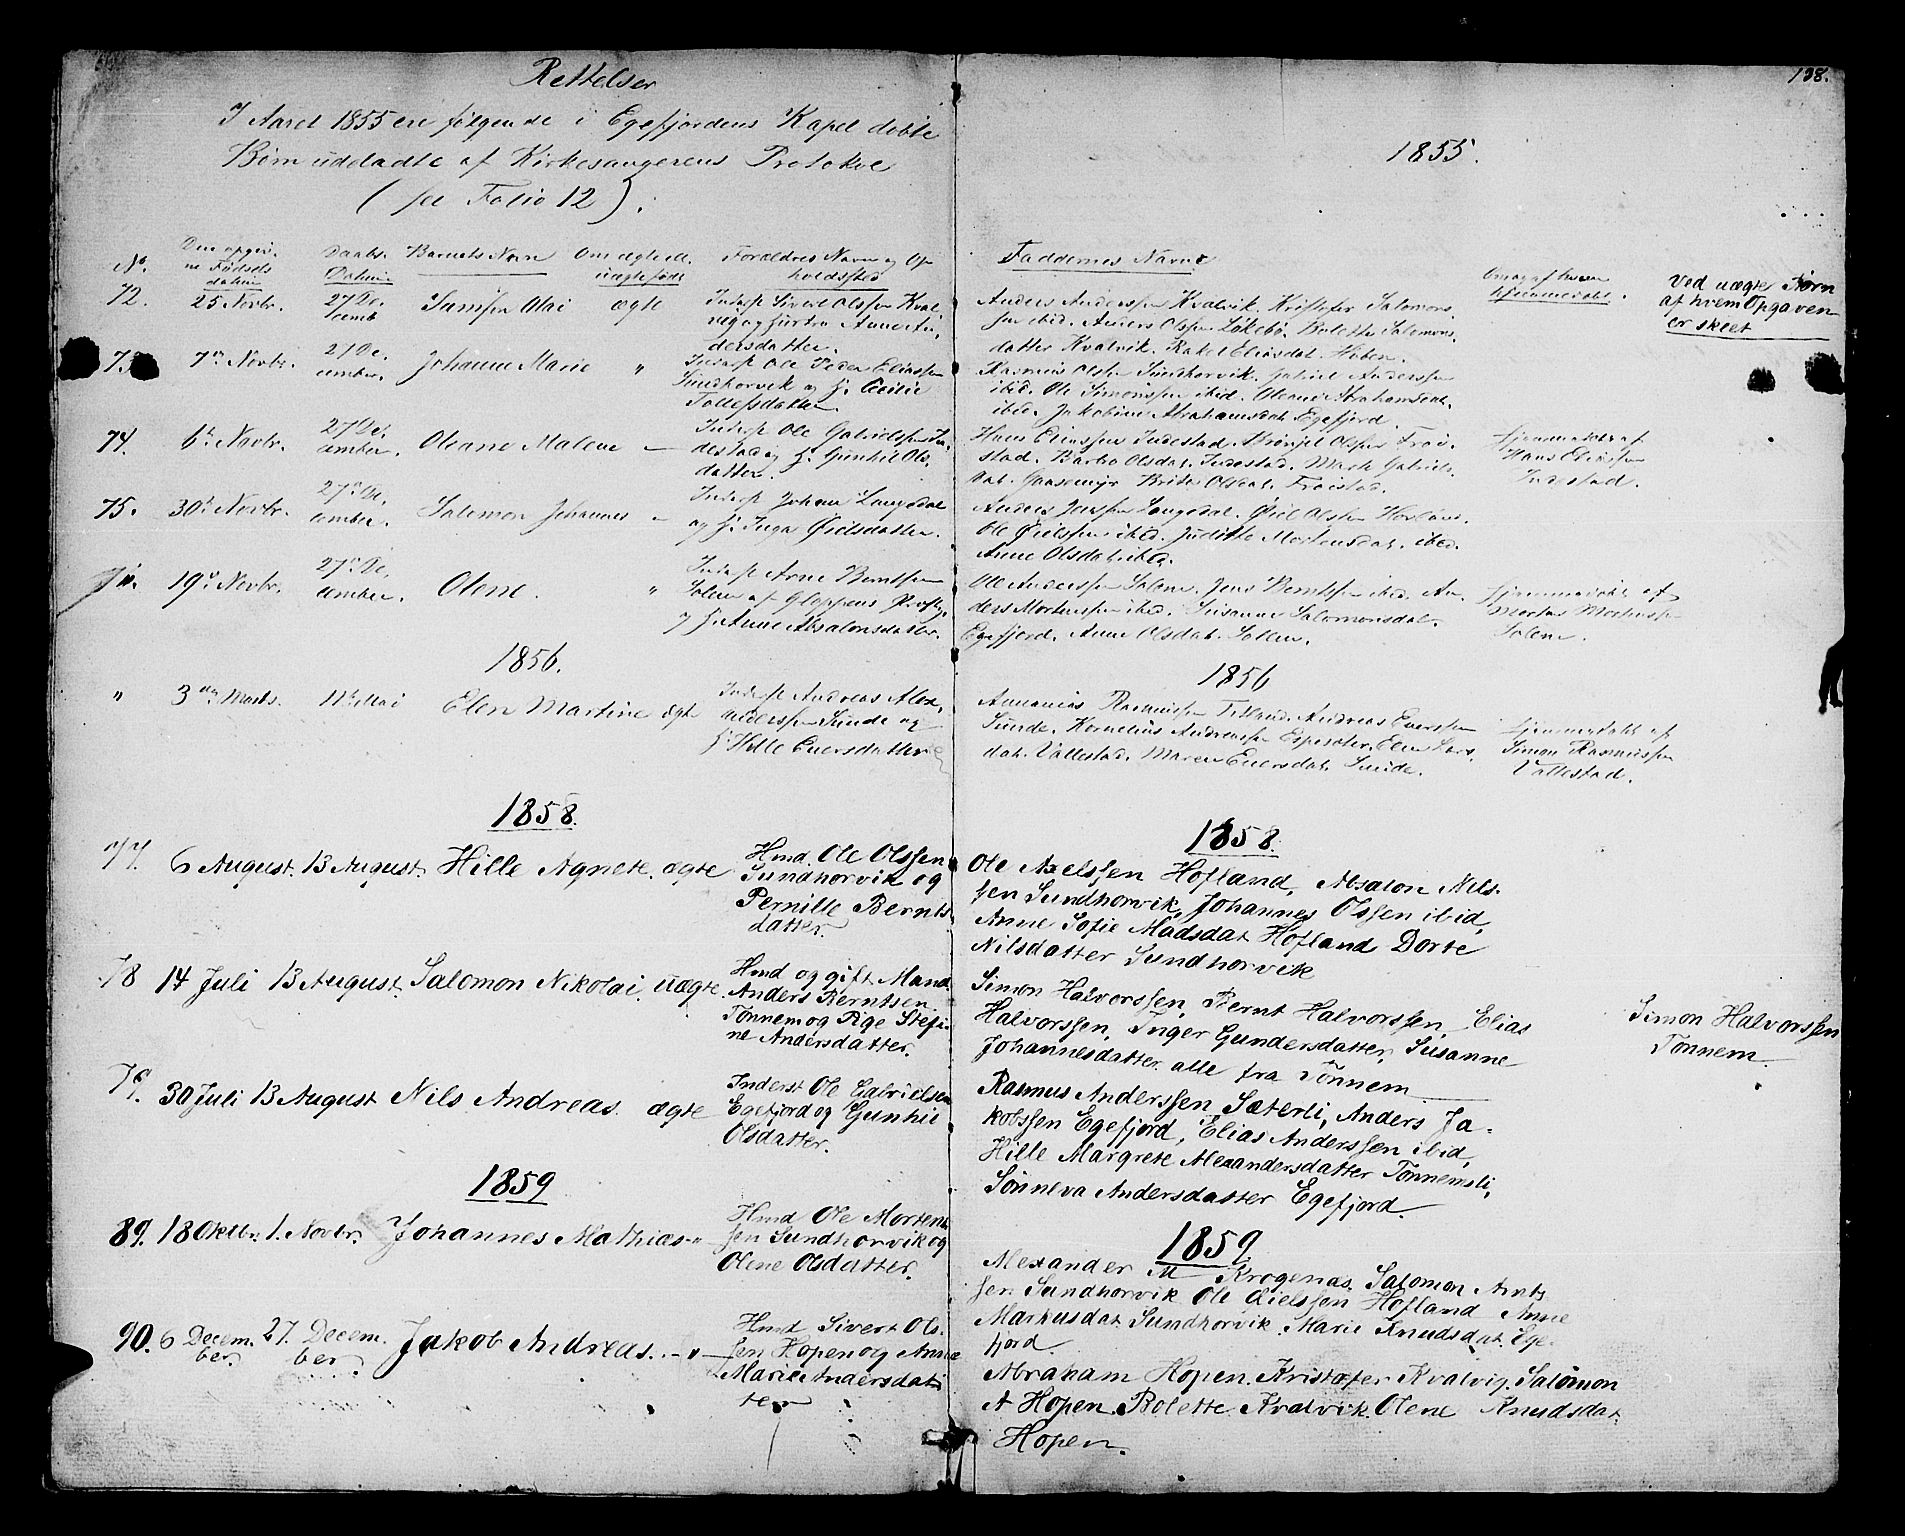 Rettelser
I Aaret 1855 ere følgende i Egefjordens Kapel døbte
Børn udeladte af Kirkesangerens Protokol
(see Folio 12).
No.
Den opgiv-
ne Fødsels
datum
Daabs-
Datum
Barnets Navn
Om ægte ell.
uægte født
Forældres Navn og Op-
holdssted
72.
25 Novbr.
27 De-
cemb
Samson Olai
ægte
Inderst Sivert Olssen Kval-
vig og Hustru Anne An-
dersdatter.
73
7de Novbr.
27 De-
cember.
Johanne Marie
"
Inderst Ole Peder Eliassen
Sundhorvik og H. Cecilie
Tollefsdatter.
74.
6te Novbr.
27 De-
cember.
Oleane Malene
Inderst Ole Gabrielssen In-
destad og H. Gunhil Ols-
datter.
75.
30te Novbr.
27de De-
cember.
Salomon Johannes
Inderst Johan Langedal
og H. Inga Øielsdatter.
19de Novbr.
27de De-
cember.
Olene.
"
Inderst Arne Berntssen
Solem af Gloppens Præstgj.
og H. Anne Absalonsdatter.
1856.
"
3die Marts.
11te Mai
Elen Martine
ægte
Inderst Andreas Alex-
anderssen Sunde og
H. Hille Eversdatter
1858.
77.
6 August.
13 August.
Hille Agnete.
ægte
Hmd. Ole Olssen
Sundhorvik og
Pernille Bernts
datter.
78
14 Juli
13 August.
Salomon Nikolai.
uægte.
Hmd og gift Mand
Anders Berntsen
Tønnem og Pige Stefi-
ne Andersdatter.
79.
30 Juli
13 August
Nils Andreas.
ægte
Inderst Ole Gabrielsen
Egefjord og Gunhil
Olsdatter.
1859
89.
18 Oktbr.
1. Novbr.
Johannes Mathias
"
Hmd Ole Morten
sen Sundhorvik og
Olene Olsdatter.
90.
6 Decem-
ber.
27. Decem-
ber
Jakob Andreas.
"
Hmd Sivert Ols-
sen Hopen og Anne
Marie Andersdat
ter
138.
1855.
Faddernes Navne
Omag af hvem
hjemmedøbt.
Ved uægte Børn
af hvem Opgaven
er skeet
Anders Anderssen Kvalvik. Kristofer Salomons-
sen ibid. Anders Olssen Løkebø. Bolette Salomons-
datter Kvalvik. Rakel Eliasdat. Hopen.
Rasmus Olssen Sundhorvik. Gabriel Anderssen
ibid. Ole Simonssen ibid. Oleane Abrahamsdat.
ibid. Jakobine Abrahamsdat. Egefjord.
Hans Eliassen Indestad. Olssen Frøi-
stad. Barbro Olsdat. Indestad. Marte Gabriels-
dat. Gaasemyr Brite Olsdat. Frøistad.
Hjemmedøbt af
Hans Eliassen
Indestad.
Anders Jenssen Langedal. Øiel Olssen
Ole Øielssen ibid. Judithe Mortensdat. ibid.
Anne Olsdat. ibid.
Ole Anderssen Solem. Jens Berntssen ibid. An-
ders Mortenssen ibid. Susanne Salomonsdat.
Egefjord. Anne Olsdat. Solem.
Hjemmedøbt af
Morten Mortenssen
Solem.
1856
Annanias Rasmussen Tilland. Andreas Everssen
Sunde. Kornelius Andreassen Espesæter. Elen Lars-
dat. Vallestad. Maren Eversdat. Sunde.
Hjemmedøbt af
Simon Rasmussen
Vallestad.
1858.
Ole Axelssen Hofland, Absalon Nils-
sen Sundhorvik, Johannes Olssen ibid,
Anne Sofie Madsdat Hofland, Dorte
Nilsdatter Sundhorvik
Simon Halvorssen, Bernt Halvorssen, Elias
Halvorssen, Inger Gundersdatter, Susanne
Johannesdatter alle fra Tønnem
Simon Halvorssen
Tønnem
Rasmus Anderssen Sæterli, Anders Ja-
kobssen Egefjord, Elias Anderssen ibid,
Hille Margrete Alexandersdatter Tønnemsli,
Sønneva Andersdatter Egefjord.
1859.
Alexander M Krogenæs. Salomon Arnts
sen Sundhorvik Ole Øielssen Hofland Anne
Markusdat. Sundhorvik. Marie Knudsdat. Ege-
fjord.
Abraham Hopen. Kristofer Kvalvig. Salomon
A Hopen. Bolette Kvalvik. Olene Knudsdat.
Hopen.